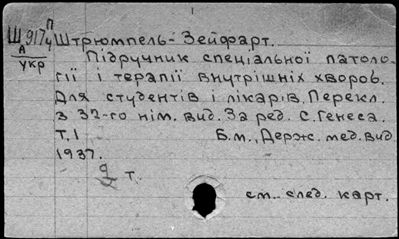 Ш 917 П
ч
А
укр
Штрюмпель-Зейфарт.
Підручник спеціальної патоло-
гії і терапії внутрішніх хвороб.
Для студентів і лікарів. Перекл.
з 32-го нім. вид. За ред. С. Генеса
Т. I Б.м., Держ. мед. вид
1937.
т.
см. след. карт.